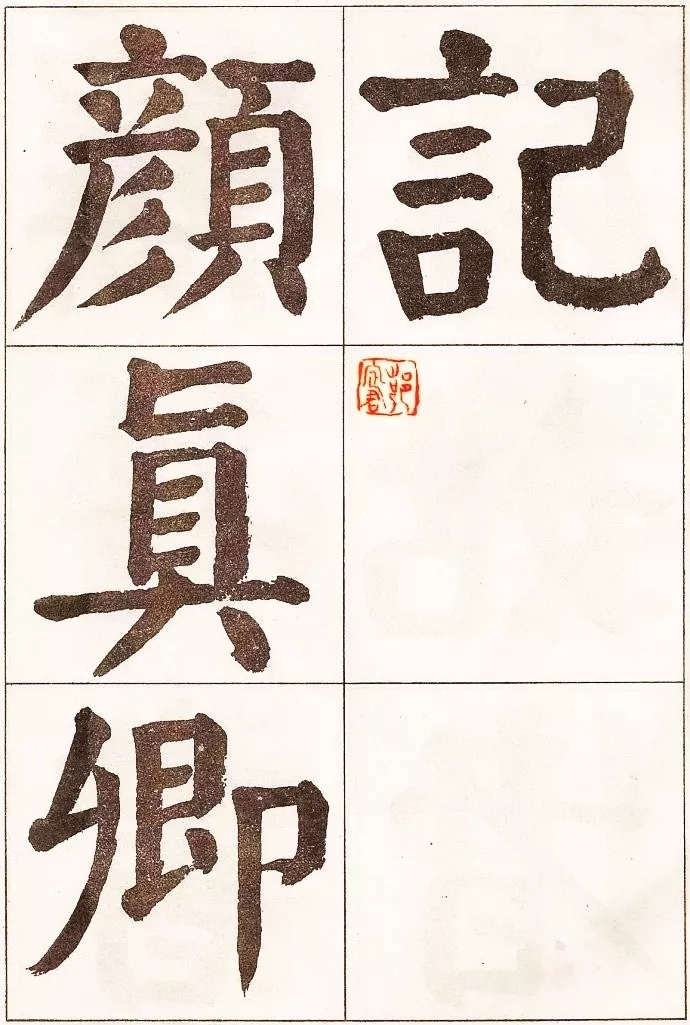 記
顏真卿